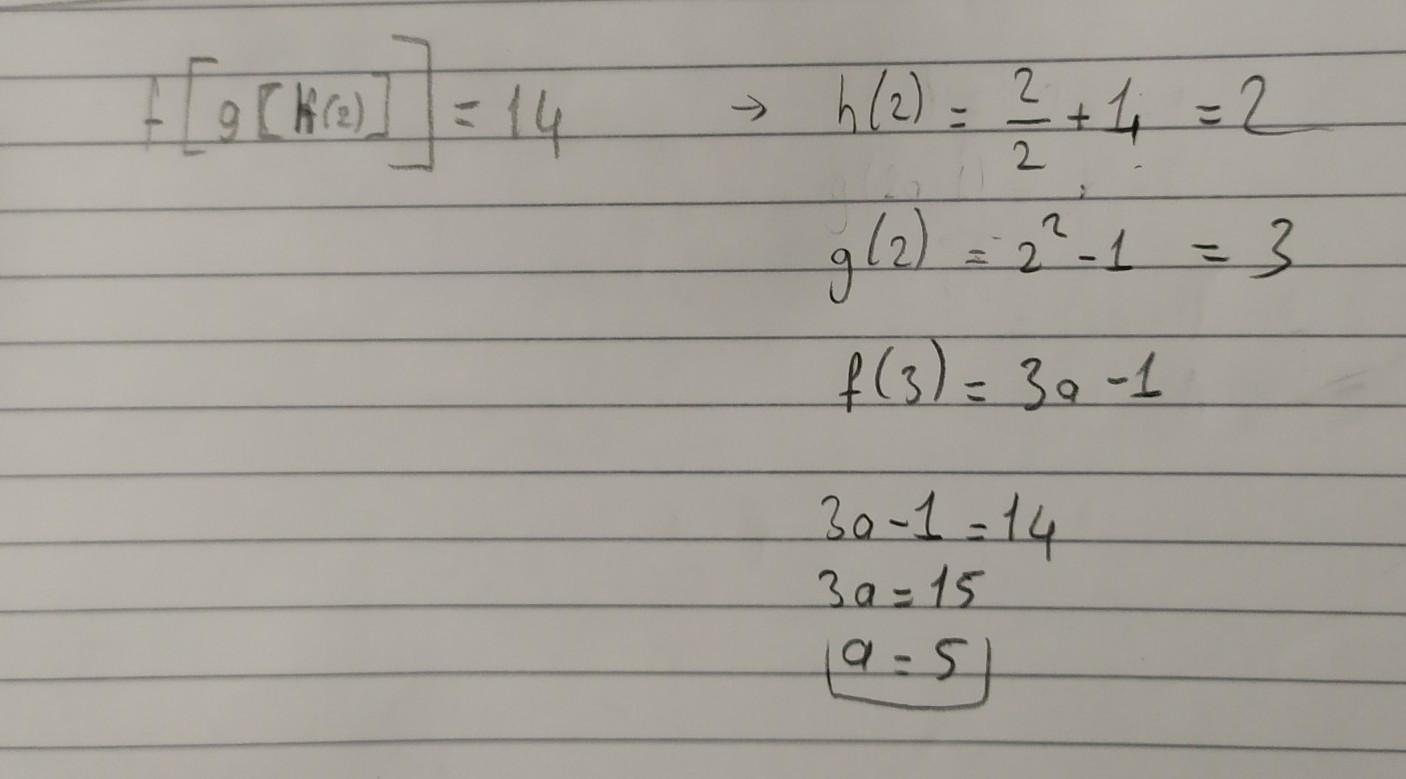 f[g[h(2)]] = 14 → h(2) = 2/2 + 1 = 2
g(2) = 2² - 1 = 3
f(3) = 3a - 1
3a - 1 = 14
3a = 15
a = 5